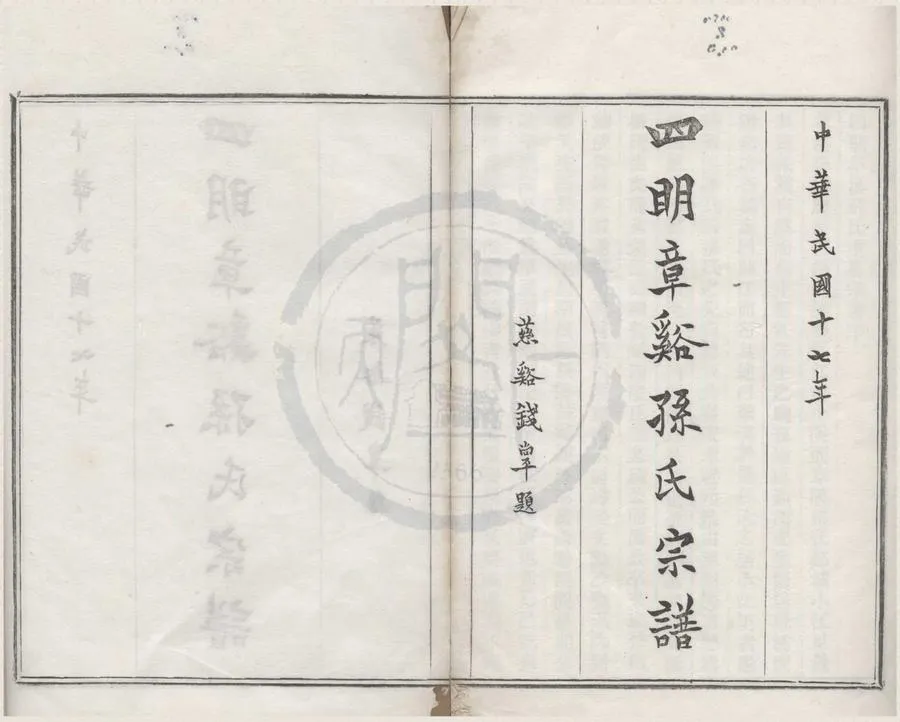 中華民國十七年
四明章谿孫氏宗譜
慈谿錢罕題